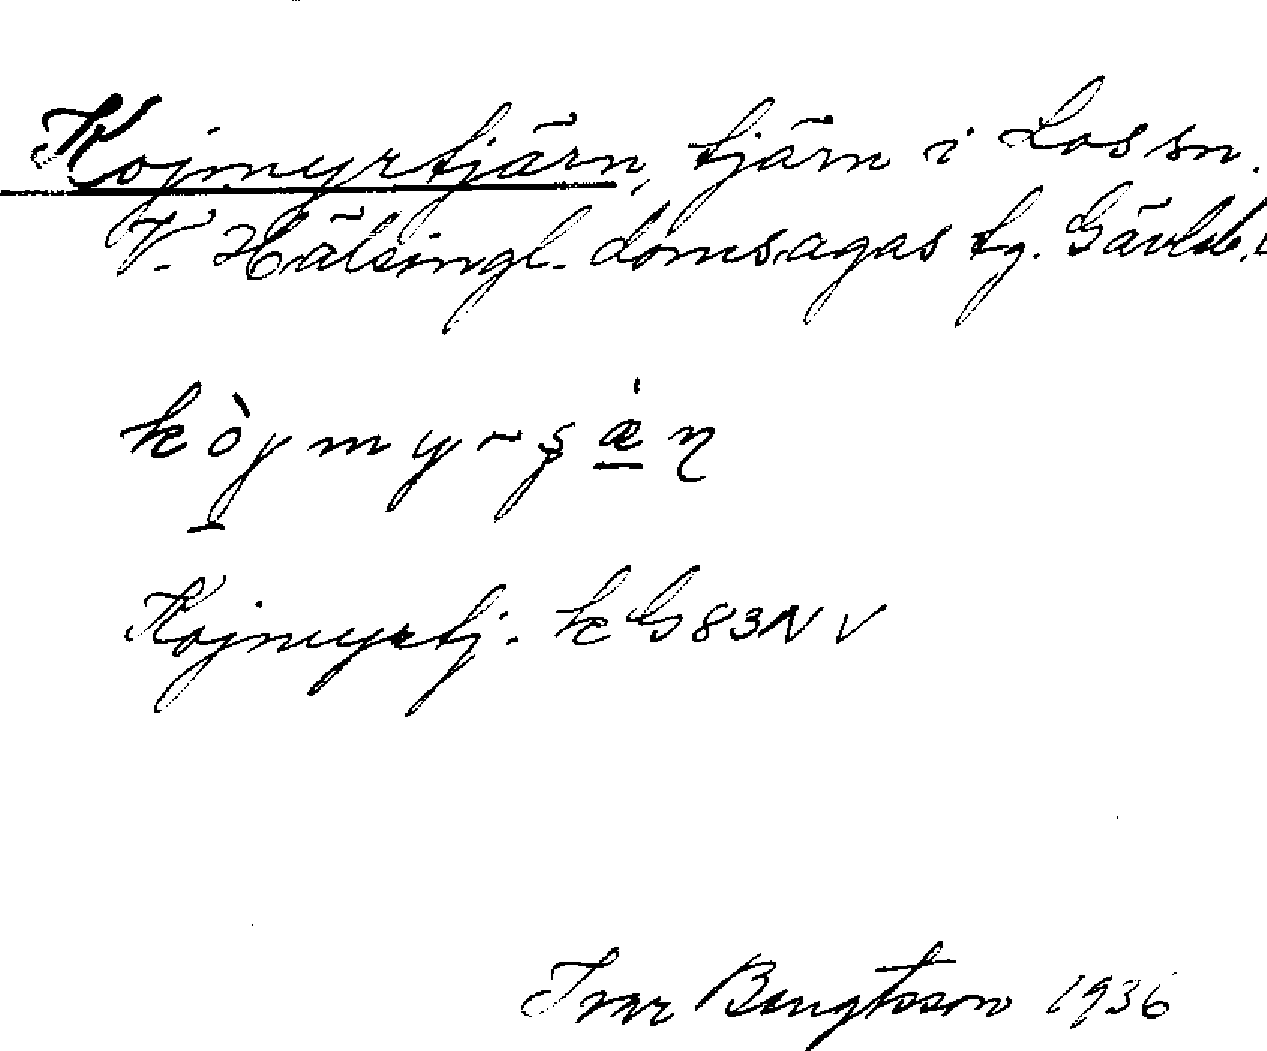 Kojmyrtjärn, tjärn i Los sn.
V. Hälsingl. domsagas tg. Gävleb.
Kojmyrtj. k G 83 N V
Ivar Bengtsson 1936